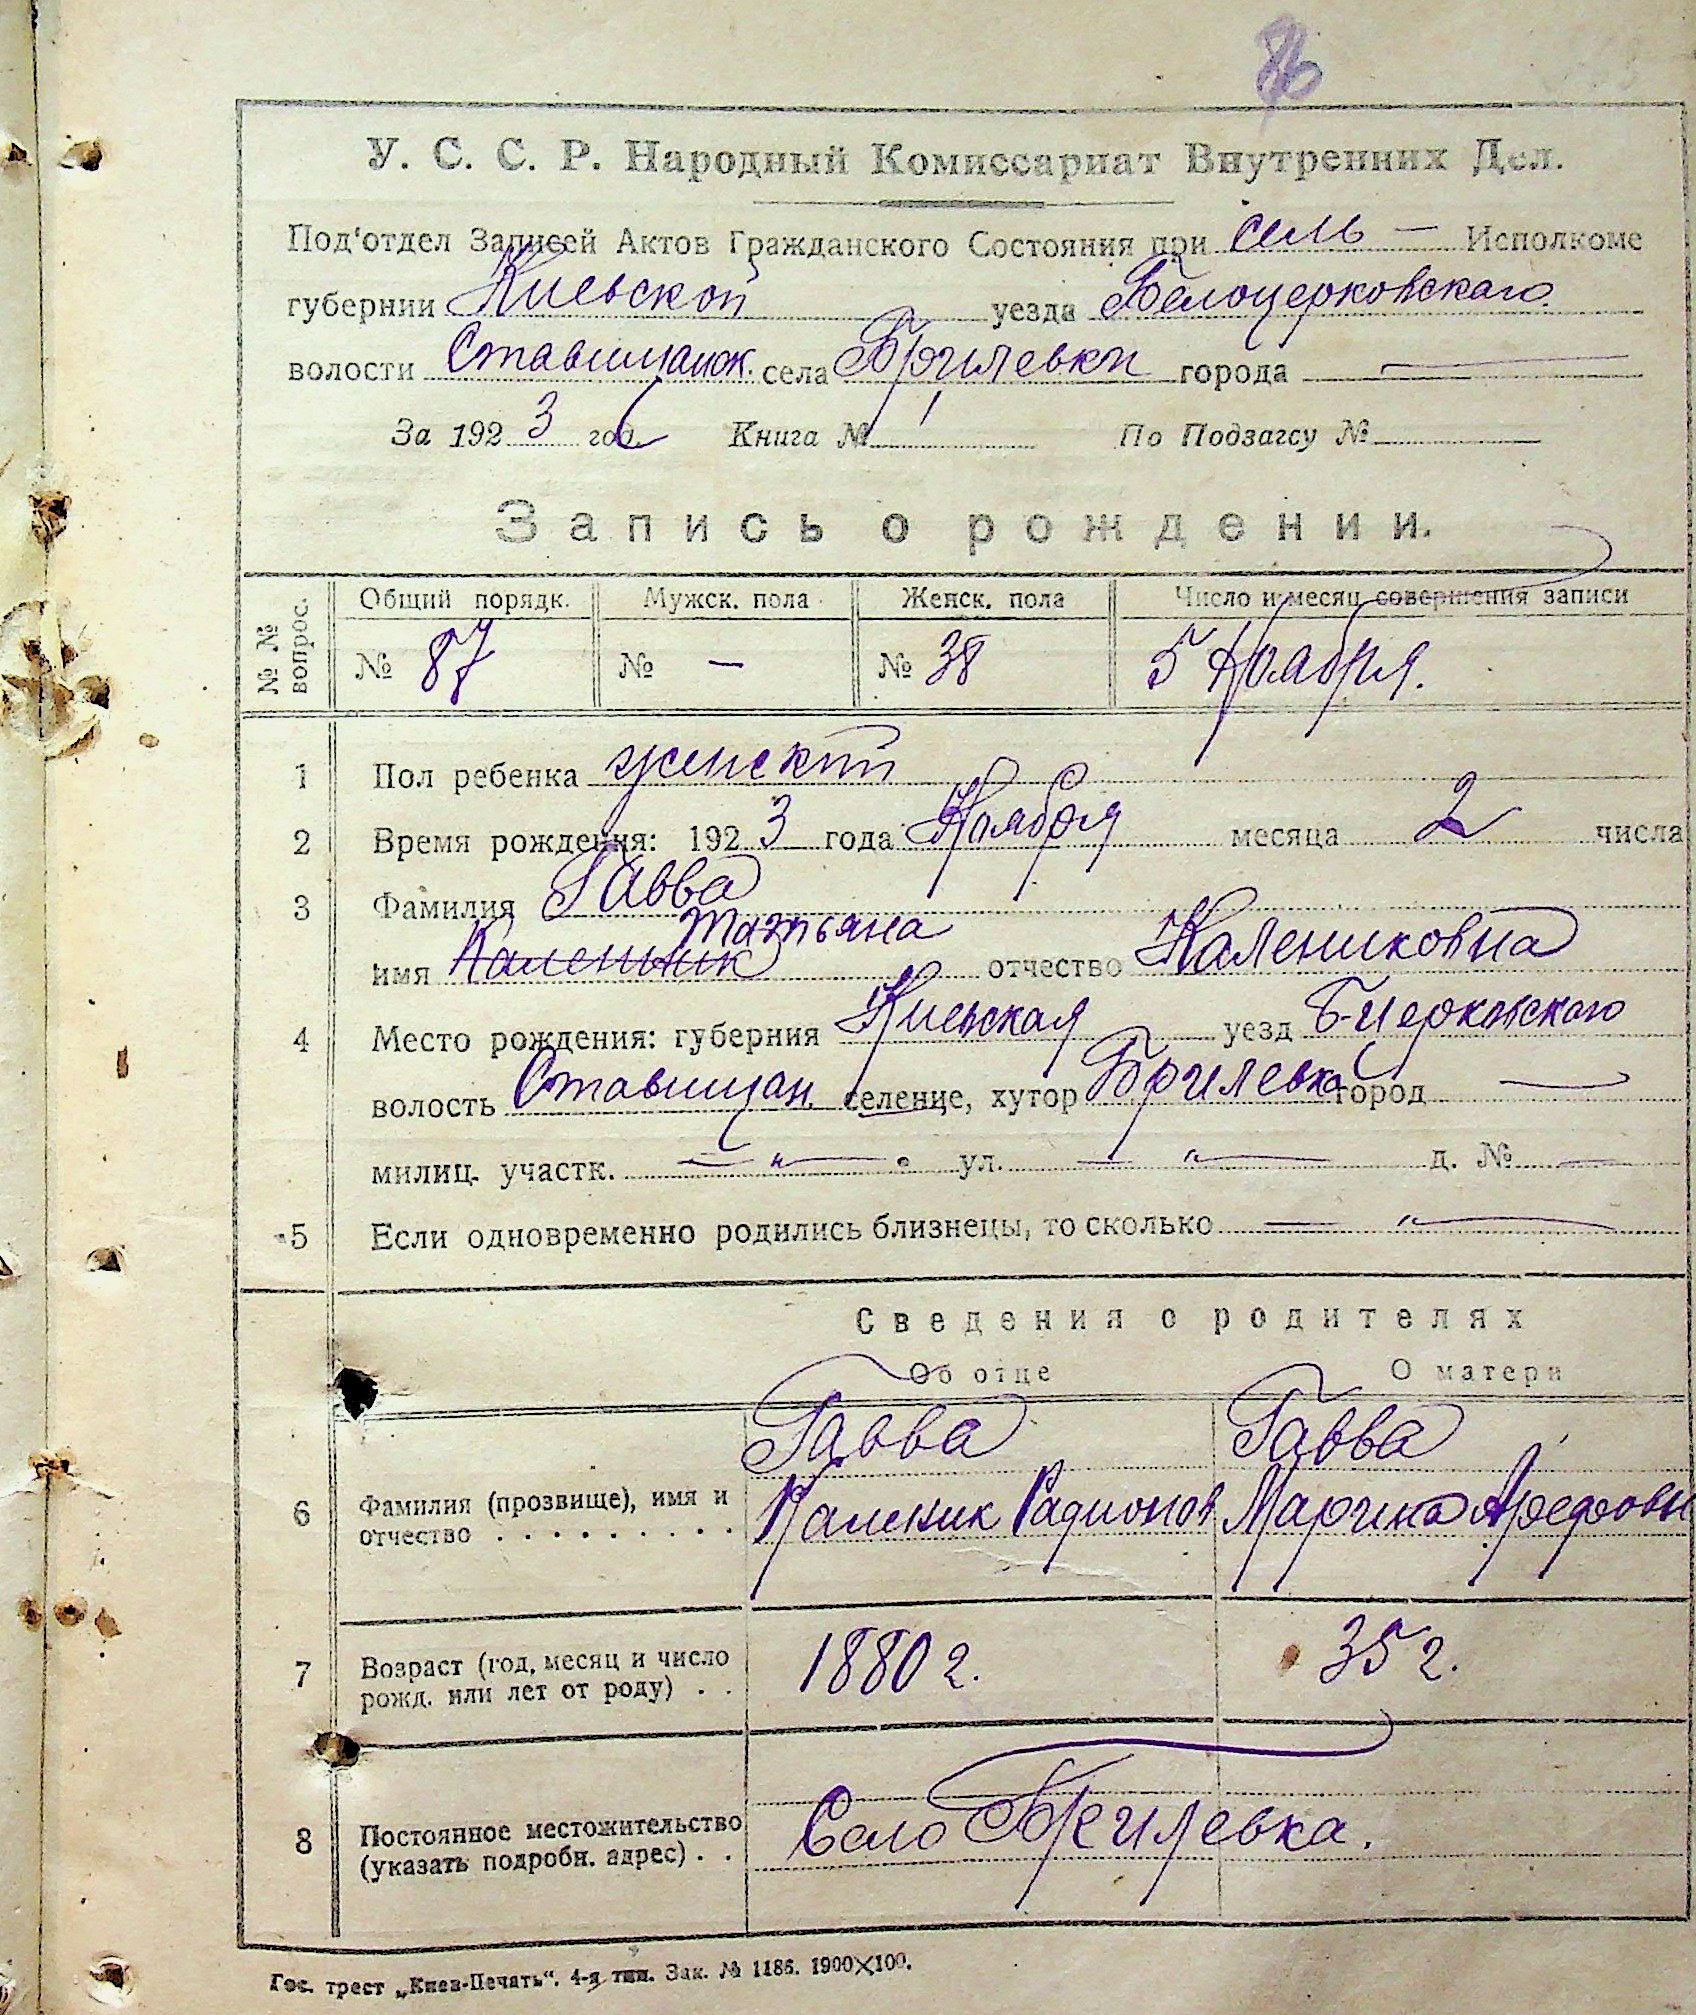 У. С. С. Р. Народный Комиссариат Внутренних Дел.
Под'отдел Записей Актов Гражданского Состояния при сель — Исполкоме
губернии Киевской уезда Белоцерковского.
волости Ставищанск. села Брилевки города —
За 1923 год. Книга № 1 По Подзагсу №
Запись о рождении.
№ № вопрос. Общий порядк. Мужск. пола Женск. пола Число и месяц совершения записи
№ 87 № — № 38 5 Ноября.
1 Пол ребенка женский
2 Время рождения: 1923 года Ноября месяца 2 числа
3 Фамилия Гавва
Татьяна
имя Каленьник отчество Калениковна
4 Место рождения: губерния Киевская уезд Б-Церковского
волость Ставищан. селение, хутор Брилевка город —
милиц. участк. — „ — ул. — „ — д. № —
5 Если одновременно родились близнецы, то сколько — „ —
Сведения о родителях
Об отце О матери
Гавва Гавва
6 Фамилия (прозвище), имя и отчество . . . . . . . . . Каленик Радионов Марина Арефовн
7 Возраст (год, месяц и число рожд. или лет от роду) . . 1880 г. 35 г.
8 Постоянное местожительство (указать подробн. адрес) . . Село Брилевка.
Гос. трест „Киев-Печать“. 4-я тип. Зак. № 1186. 1900×100.